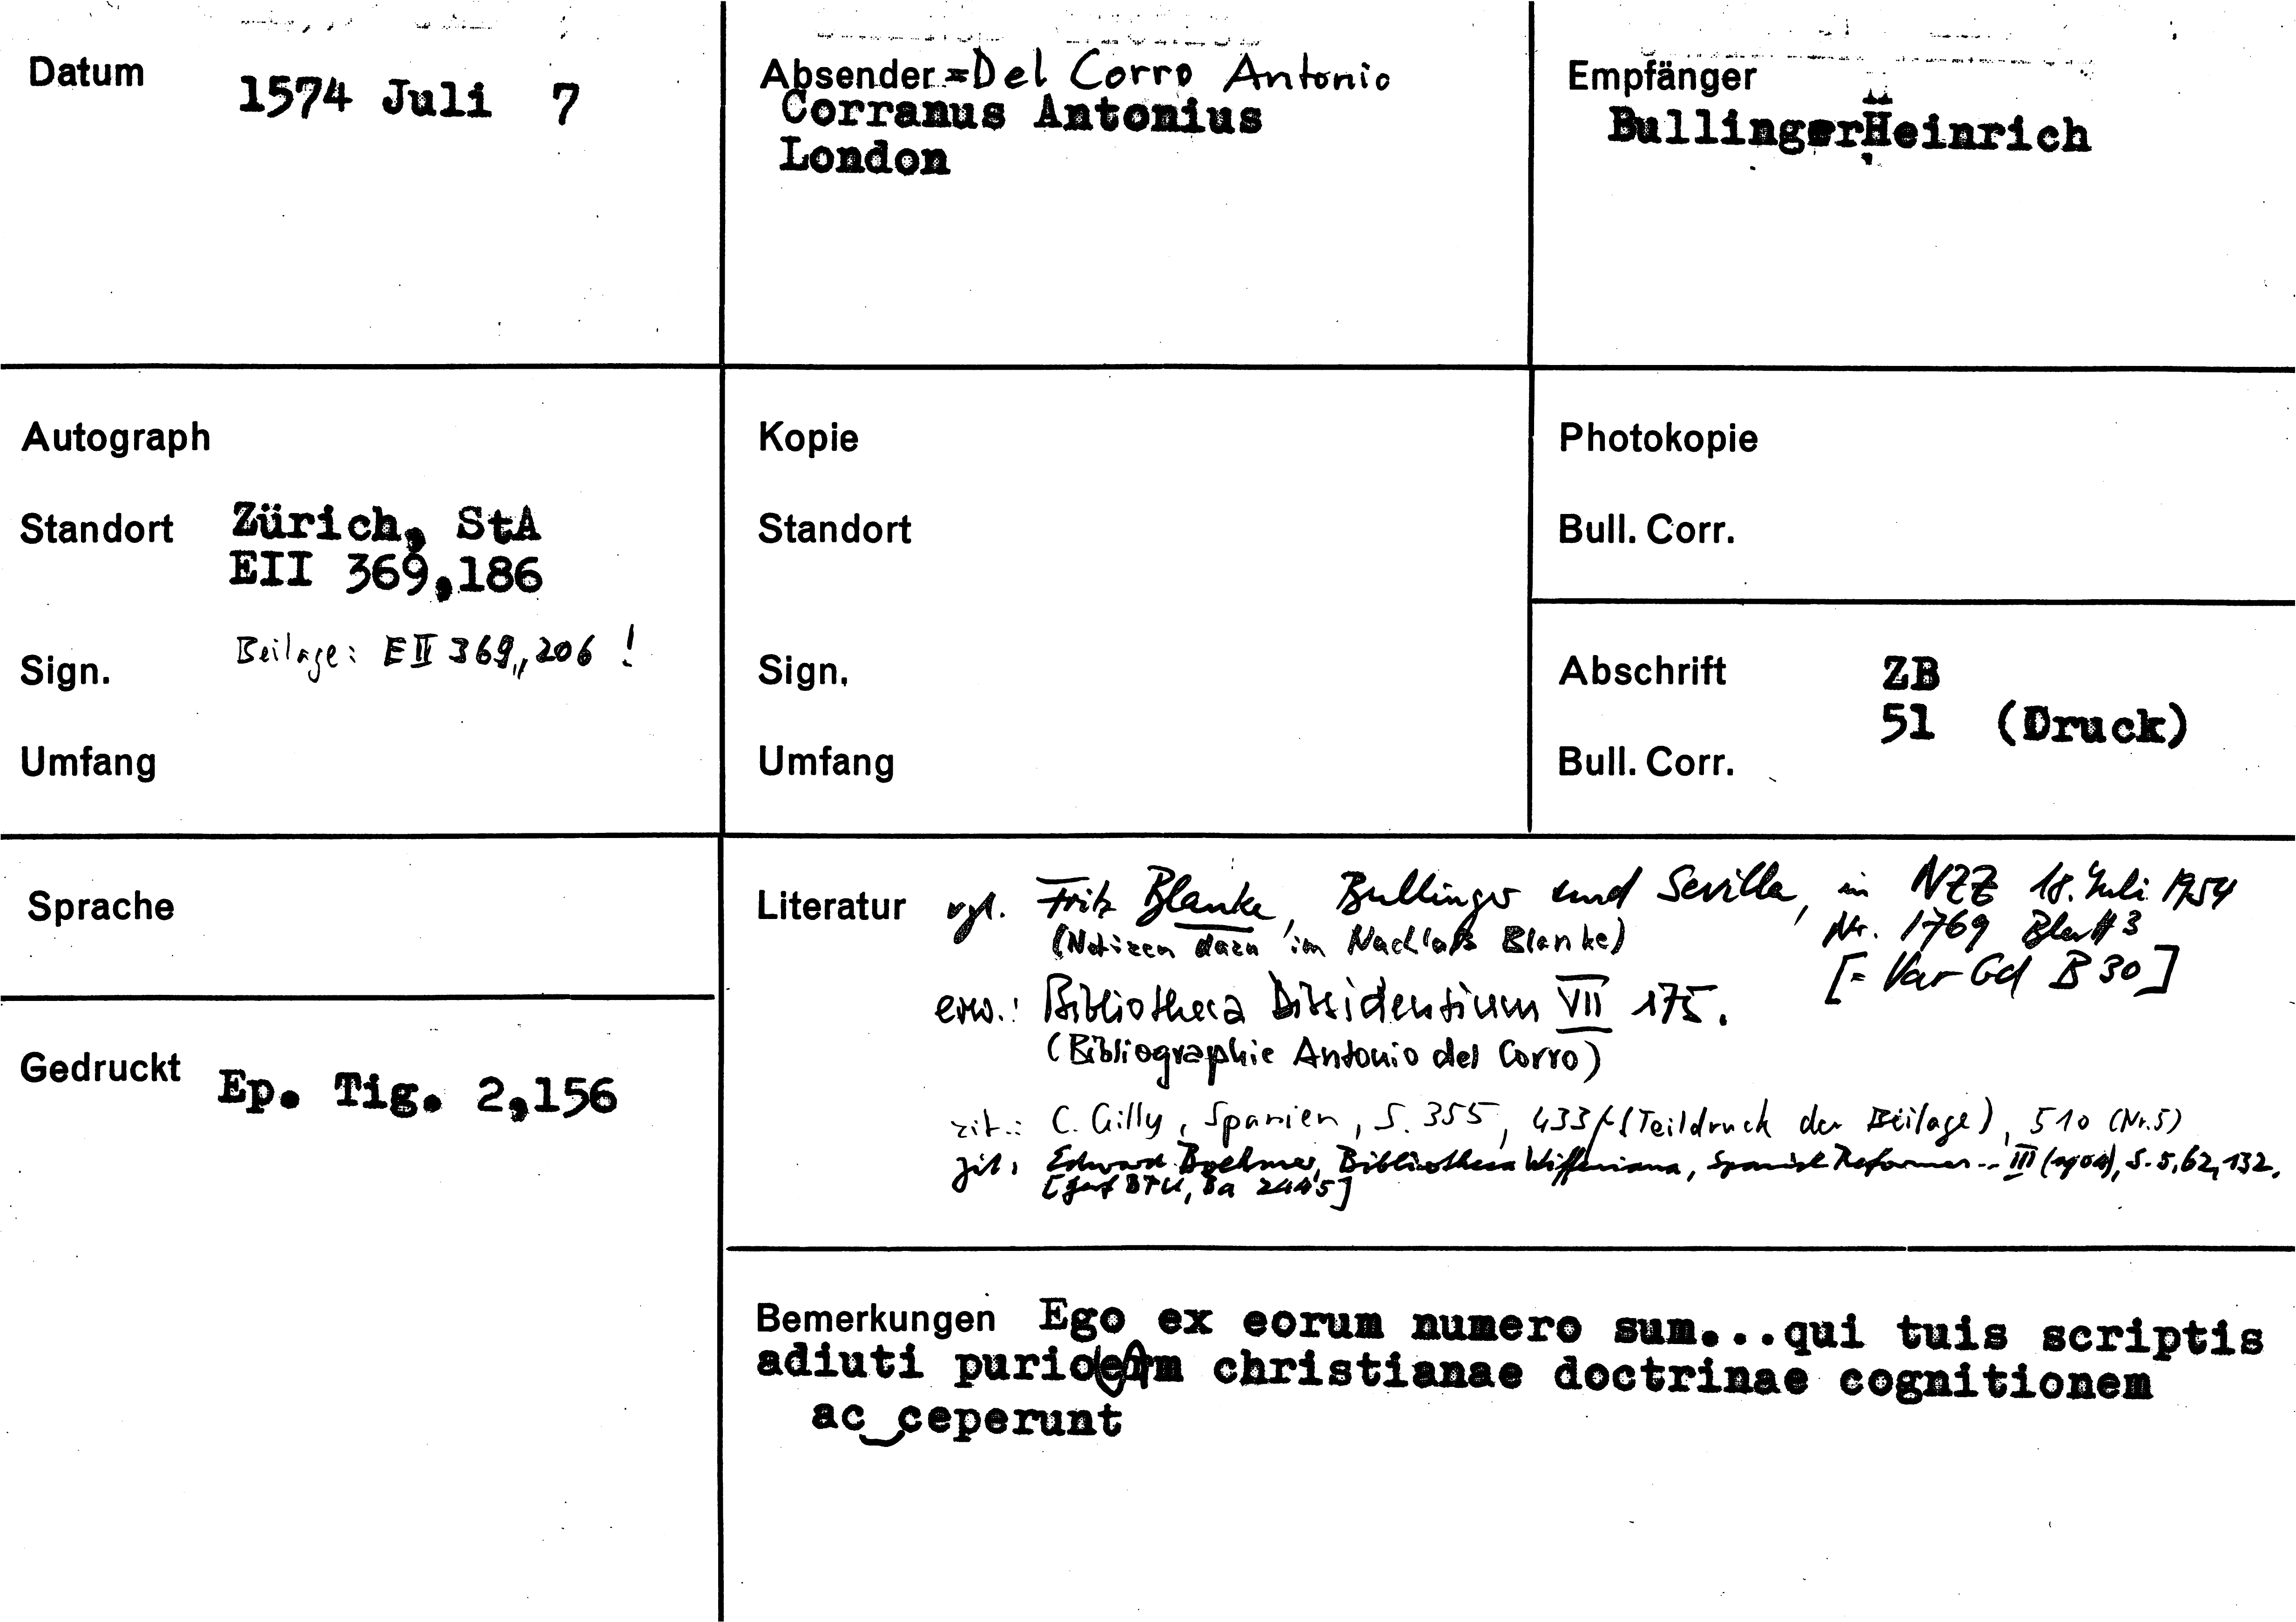 Datum 1574 Juli 7
Absender = Del Corro Antonio
Corranus Antonius
London
Empfänger
Bullinger Heinrich
Autograph
Standort Zürich, StA
EII 369,186
Sign. Beilage: E II 369,, 206 !
Umfang
Kopie
Standort
Sign.
Umfang
Photokopie
Bull. Corr.
Abschrift ZB
51 (Druck)
Bull. Corr.
Sprache
Gedruckt Ep. Tig. 2,156
Literatur vgl. Fritz Blanke, Bullinger und Sevilla, in NZZ 18. Juli 1954
(Notizen dazu im Nachlaß Blanke) Nr. 1769 Blatt 3
[= Var Gd B 30]
erw.: Bibliotheca Dissidentium VII 175.
(Bibliographie Antonio del Corro)
zit.: C. Gilly, Spanien, S. 355, 433f (Teildruck der Beilage), 510 (Nr. 5)
zit: Edward Boehmer, Bibliotheca Wiffeniana, Spanish Reformers... III (1904), S. 5, 62, 132.
Bemerkungen Ego ex eorum numero sum...qui tuis scriptis
adiuti puriorem christianae doctrinae cognitionem
ac ceperunt